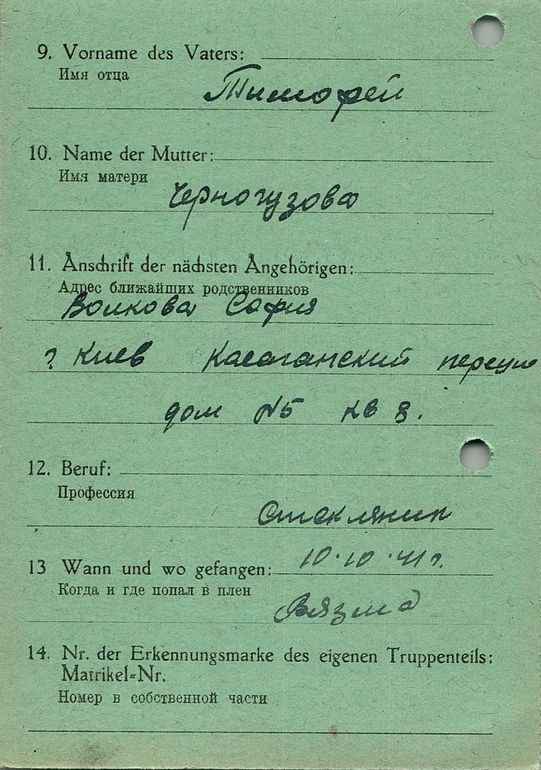 9. Vorname des Vaters:
Имя отца
Тимофей
10. Name der Mutter:
Имя матери
Черногузова
11. Anschrift der nächsten Angehörigen:
Адрес ближайших родственников
Волкова София
г Киев Касаганский переул
дом N5 кв 8.
12. Beruf:
Профессия
Стекляник
13 Wann und wo gefangen:
10.10.41г.
Когда и где попал в плен
Вязма
14. Nr. der Erkennungsmarke des eigenen Truppenteils:
Matrikel=Nr.
Номер в собственной части